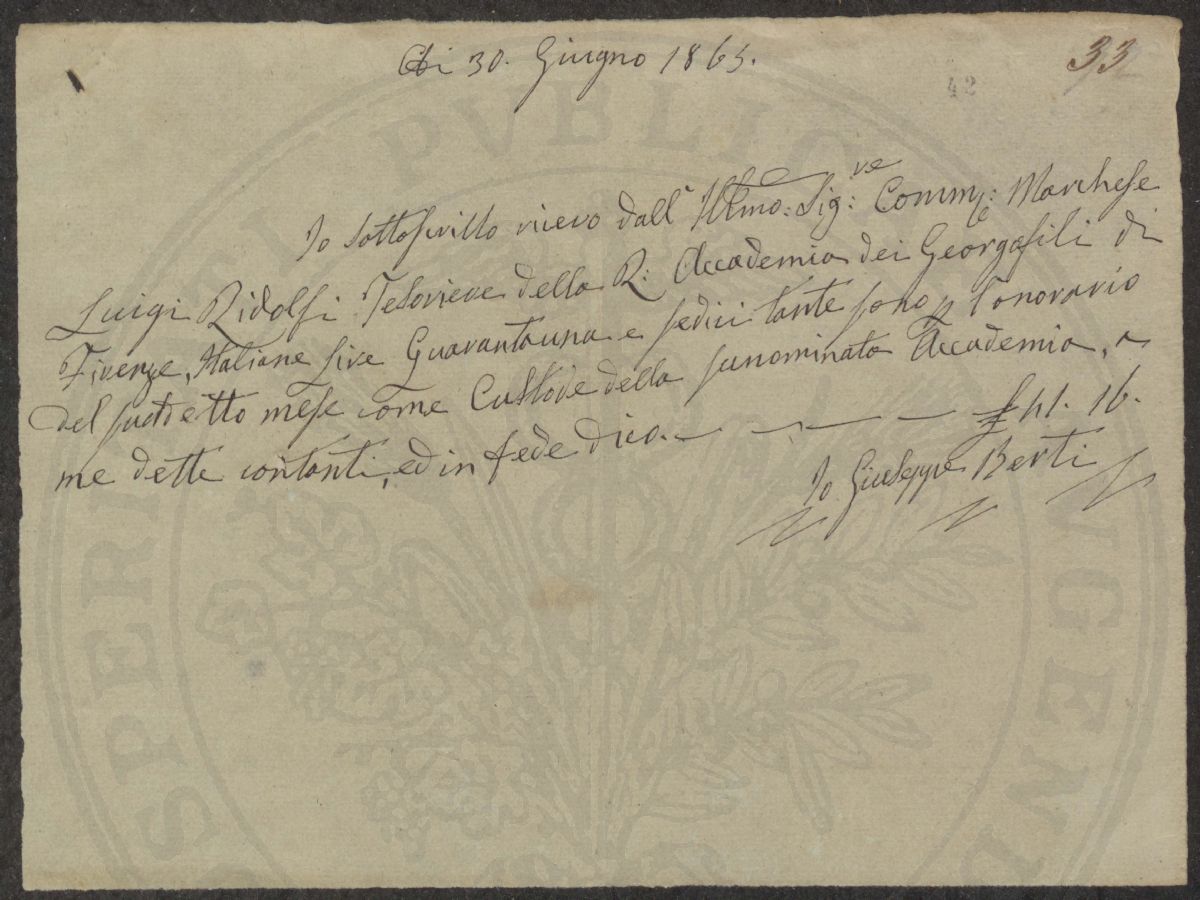 Di 30. Giugno 1865.
33
42
Io sottoscritto ricevo dall' Illmo: Sig:re Comm:e Marchese
Luigi Ridolfi Tesoriere della R: Accademia dei Georgofili di
Firenze, Italiane Lire Quarantauna e sedici tante sono p l'onorario
del suddetto mese come Custode della sunominata Accademia, a
me dette contanti, ed in fede dico. — — — £ 41. 16.
Io Giuseppe Berti
PROSPERITATI PVBLICAE AVGENDAE